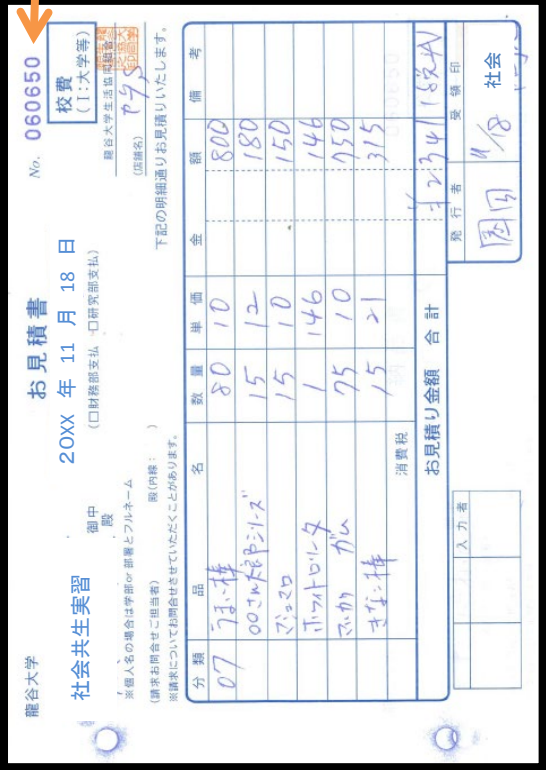 No. 060650
校費
(Ⅰ:大学等)
お見積書
20XX 年 11 月 18 日
(口財務部支払 口研究部支払)
龍谷大学
社会共生実習
御中
殿
※個人名の場合は学部or部署とフルネーム
(請求お問合せご担当者)
殿(内線: )
※請求についてお問合せさせていただくことがあります。
龍谷大学生活協同組合
(店舗名)
下記の明細通りお見積りいたします。
分類 品 名 数量 単価 金 額 備 考
07 うまい棒 80 10 800
〇〇さん太郎シリーズ 15 12 180
マシュマロ 15 10 150
ホワイトロリータ 1 146 146
マルカワ ガム 75 10 750
きなこ棒 15 21 315
消費税
お見積り金額 合計 ¥2341
入力者
発行者 受領印
11/18 社会